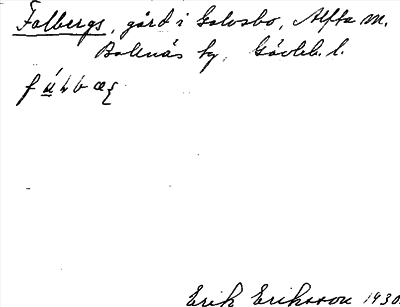 Falbergs, gård i Galvsbo, Alfta sn.
Bollnäs hg, Gävleb. l.
Erik Eriksson 1930